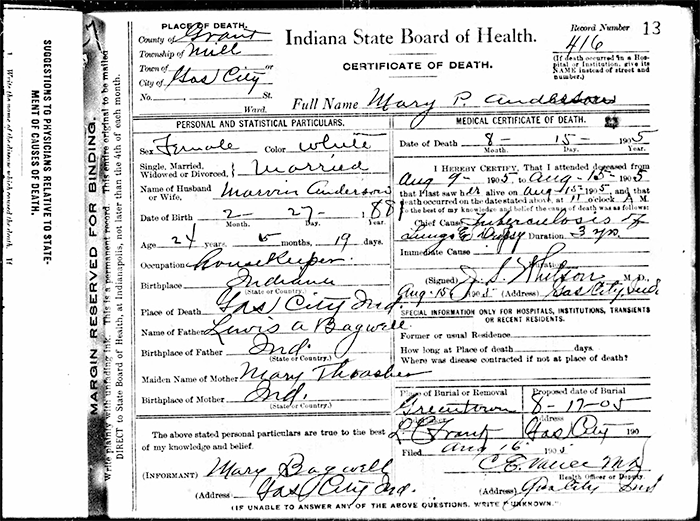 SUGGESTIONS TO PHYSICIANS RELATIVE TO STATE-
MENT OF CAUSES OF DEATH.
MARGIN RESERVED FOR BINDING.
Write plainly with unfading ink. This is a permanent record. This entire original to be mailed
DIRECT to State Board of Health, at Indianapolis, not later than the 4th of each month.
PLACE OF DEATH.
County of Grant
Township of Mill
Town of or
City of Gas City
No. St.
Ward.
Indiana State Board of Health.
CERTIFICATE OF DEATH.
Record Number 13
416
(If death occurred in a Hos-
pital or Institution, give its
NAME instead of street and
number)
Full Name Mary P. Anderson
PERSONAL AND STATISTICAL PARTICULARS.
Sex Female Color White
Single, Married,
Widowed or Divorced, Married
Name of Husband
or Wife, Marvin Anderson
Date of Birth 2 - 27 - 188
Month. Day. Year.
Age 24 years, 5 months, 19 days.
Occupation Housekeeper
Birthplace Indiana
(State or Country.)
Place of Death Gas City Ind.
Name of Father Lewis A Bagwell
Birthplace of Father Ind.
(State or Country.)
Maiden Name of Mother Mary Thrasher
Birthplace of Mother Ind.
(State or Country.)
The above stated personal particulars are true to the best
of my knowledge and belief.
(INFORMANT) Mary Bagwell
(Address) Gas City Ind.
MEDICAL CERTIFICATE OF DEATH.
Date of Death 8 - 15 - 1905
Month. Day. Year.
I HEREBY CERTIFY, That I attended deceased from
Aug 9 - 1905, to Aug - 15 - 1905
that I last saw her alive on Aug 15 - 1905 and that
death occurred on the date stated above, at 11 o'clock, A M.
To the best of my knowledge and belief the cause of death was as follows:
Chief Cause Tuberculosis of
Lungs & Dropsy Duration 3 yrs.
Immediate Cause
(Signed) M. D.
Aug. 15 1905 (Address) Gas City, Ind
SPECIAL INFORMATION ONLY FOR HOSPITALS, INSTITUTIONS, TRANSIENTS
OR RECENT RESIDENTS.
Former or usual Residence
How long at Place of death days.
Where was disease contracted if not at place of death?
Place of Burial or Removal
Greentown
Proposed date of Burial
8 - 17 - 05
Gas City 190
Filed Aug 16 1905
Health Officer or Deputy
(Address) Gas City Ind
(IF UNABLE TO ANSWER ANY OF THE ABOVE QUESTIONS, WRITE "UNKNOWN."